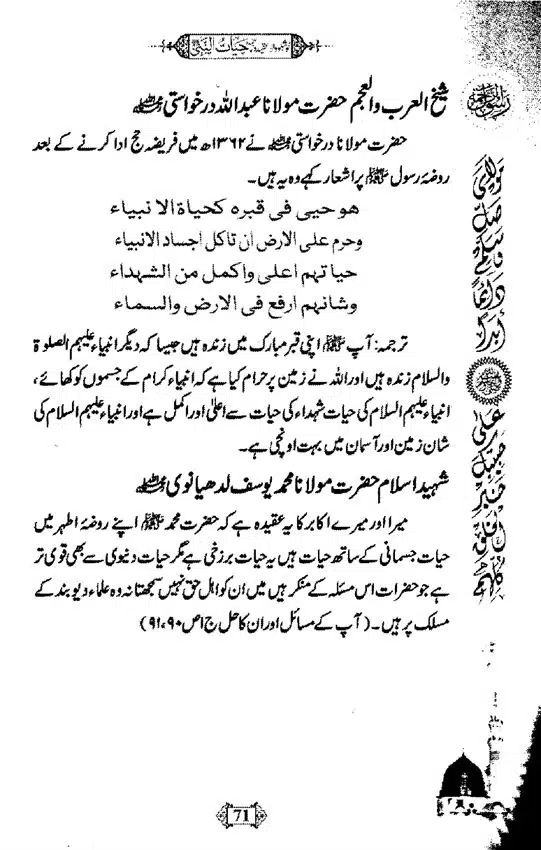 حیات النبی ﷺ
شیخ العرب والعجم حضرت مولانا عبداللہ درخواستی رحمۃ اللہ علیہ
حضرت مولانا درخواستی رحمۃ اللہ علیہ نے ۱۳۶۲ھ میں فریضہ حج ادا کرنے کے بعد
روضۂ رسول ﷺ پر اشعار کہے وہ یہ ہیں۔
هو حیی فی قبره کحیاة الا نبیاء
وحرم علی الارض ان تاکل اجساد الانبیاء
حیا تهم اعلی واکمل من الشهداء
وشانهم ارفع فی الارض والسماء
ترجمہ: آپ ﷺ اپنی قبر مبارک میں زندہ ہیں جیسا کہ دیگر انبیاء علیہم الصلوٰۃ
والسلام زندہ ہیں اور اللہ نے زمین پر حرام کیا ہے کہ انبیاء کرام کے جسموں کو کھائے،
انبیاء علیہم السلام کی حیات شہداء کی حیات سے اعلیٰ اور اکمل ہے اور انبیاء علیہم السلام کی
شان زمین اور آسمان میں بہت اونچی ہے۔
شہید اسلام حضرت مولانا محمد یوسف لدھیانوی رحمۃ اللہ علیہ
میرا اور میرے اکابر کا یہ عقیدہ ہے کہ حضرت محمد ﷺ اپنے روضۂ اطہر میں
حیات جسمانی کے ساتھ حیات ہیں یہ حیات برزخی ہے مگر حیات دنیوی سے بھی قوی تر
ہے جو حضرات اس مسئلہ کے منکر ہیں میں اُن کو اہل حق نہیں سمجھتا نہ وہ علماء دیوبند کے
مسلک پر ہیں۔ (آپ کے مسائل اور ان کا حل ج۱ ص۹۰،۹۱)
مولای صل وسلم دائما ابدا
علی حبیبک خیر الخلق کلهم
71